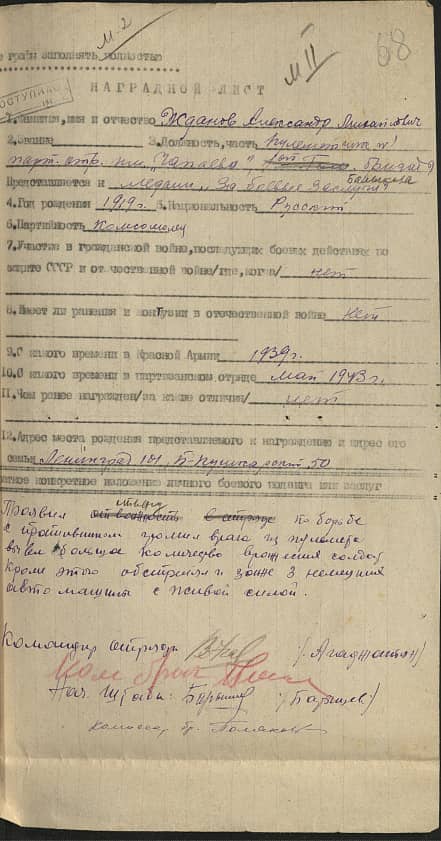 М-2
М II
68
е граф заполнять полностью
ПОСТУПИЛА
НАГРАДНОЙ ЛИСТ
1. Фамилия, имя и отчество Жданов Александр Михайлович
2. Звание 3. Должность, часть пулеметчик
парт. отр. им. "Чапаева",
Бабышкина
Представляется к медали "За боевые заслуги"
4. Год рождения 1919 г. 5. Национальность Русский
6. Партийность Комсомолец
7. Участие в гражданской войне, последующих боевых действиях по
защите СССР и отечественной войне/где, когда/ нет
8. Имеет ли ранения и контузии в отечественной войне нет
9. С какого времени в Красной Армии 1939 г.
10. С какого времени в партизанском отряде май 1943 г.
11. Чем ранее награжден/за какие отличия/ нет
12. Адрес места рождения представляемого к награждению и адрес его
семьи Ленинград 101, Б-Пушкарский 50
раткое конкретное изложение личного боевого подвига или заслуг
Проявил отвагу по борьбе
с противником громил врага из пулемета
вывел большое количество вражеских солдат
кроме этого обстрелял и зажег 3 немецких
авто машины с живой силой.
Командир отряда /Агаджанян/
Ком бриг
Нач. Штаба: Барышев /Барышев/
комиссар бр. Поляков